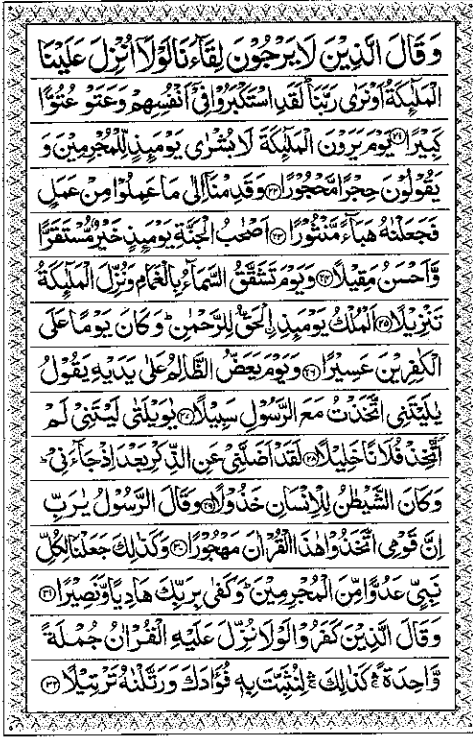 وَقَالَ الَّذِيْنَ لَا يَرْجُوْنَ لِقَآءَنَا لَوْلَآ اُنْزِلَ عَلَيْنَا
الْمَلٰٓئِكَةُ اَوْ نَرٰى رَبَّنَا ؕ لَقَدِ اسْتَكْبَرُوْا فِيْۤ اَنْفُسِهِمْ وَعَتَوْ عُتُوًّا
كَبِيْرًا ﴿۲۱﴾ يَوْمَ يَرَوْنَ الْمَلٰٓئِكَةَ لَا بُشْرٰى يَوْمَئِذٍ لِّلْمُجْرِمِيْنَ وَ
يَقُوْلُوْنَ حِجْرًا مَّحْجُوْرًا ﴿۲۲﴾ وَقَدِمْنَاۤ اِلٰى مَا عَمِلُوْا مِنْ عَمَلٍ
فَجَعَلْنٰهُ هَبَآءً مَّنْثُوْرًا ﴿۲۳﴾ اَصْحٰبُ الْجَنَّةِ يَوْمَئِذٍ خَيْرٌ مُّسْتَقَرًّا
وَّاَحْسَنُ مَقِيْلًا ﴿۲۴﴾ وَيَوْمَ تَشَقَّقُ السَّمَآءُ بِالْغَمَامِ وَنُزِّلَ الْمَلٰٓئِكَةُ
تَنْزِيْلًا ﴿۲۵﴾ اَلْمُلْكُ يَوْمَئِذِ ۟الْحَقُّ لِلرَّحْمٰنِ ؕ وَكَانَ يَوْمًا عَلَى
الْكٰفِرِيْنَ عَسِيْرًا ﴿۲۶﴾ وَيَوْمَ يَعَضُّ الظَّالِمُ عَلٰى يَدَيْهِ يَقُوْلُ
يٰلَيْتَنِى اتَّخَذْتُ مَعَ الرَّسُوْلِ سَبِيْلًا ﴿۲۷﴾ يٰوَيْلَتٰى لَيْتَنِيْ لَمْ
اَتَّخِذْ فُلَانًا خَلِيْلًا ﴿۲۸﴾ لَقَدْ اَضَلَّنِيْ عَنِ الذِّكْرِ بَعْدَ اِذْ جَآءَنِيْ ؕ
وَكَانَ الشَّيْطٰنُ لِلْاِنْسَانِ خَذُوْلًا ﴿۲۹﴾ وَقَالَ الرَّسُوْلُ يٰرَبِّ
اِنَّ قَوْمِى اتَّخَذُوْا هٰذَا الْقُرْاٰنَ مَهْجُوْرًا ﴿۳۰﴾ وَكَذٰلِكَ جَعَلْنَا لِكُلِّ
نَبِيٍّ عَدُوًّا مِّنَ الْمُجْرِمِيْنَ ؕ وَكَفٰى بِرَبِّكَ هَادِيًا وَّنَصِيْرًا ﴿۳۱﴾
وَقَالَ الَّذِيْنَ كَفَرُوْا لَوْلَا نُزِّلَ عَلَيْهِ الْقُرْاٰنُ جُمْلَةً
وَّاحِدَةً ۛۚ كَذٰلِكَ ۛۚ لِنُثَبِّتَ بِهٖ فُؤَادَكَ وَرَتَّلْنٰهُ تَرْتِيْلًا ﴿۳۲﴾